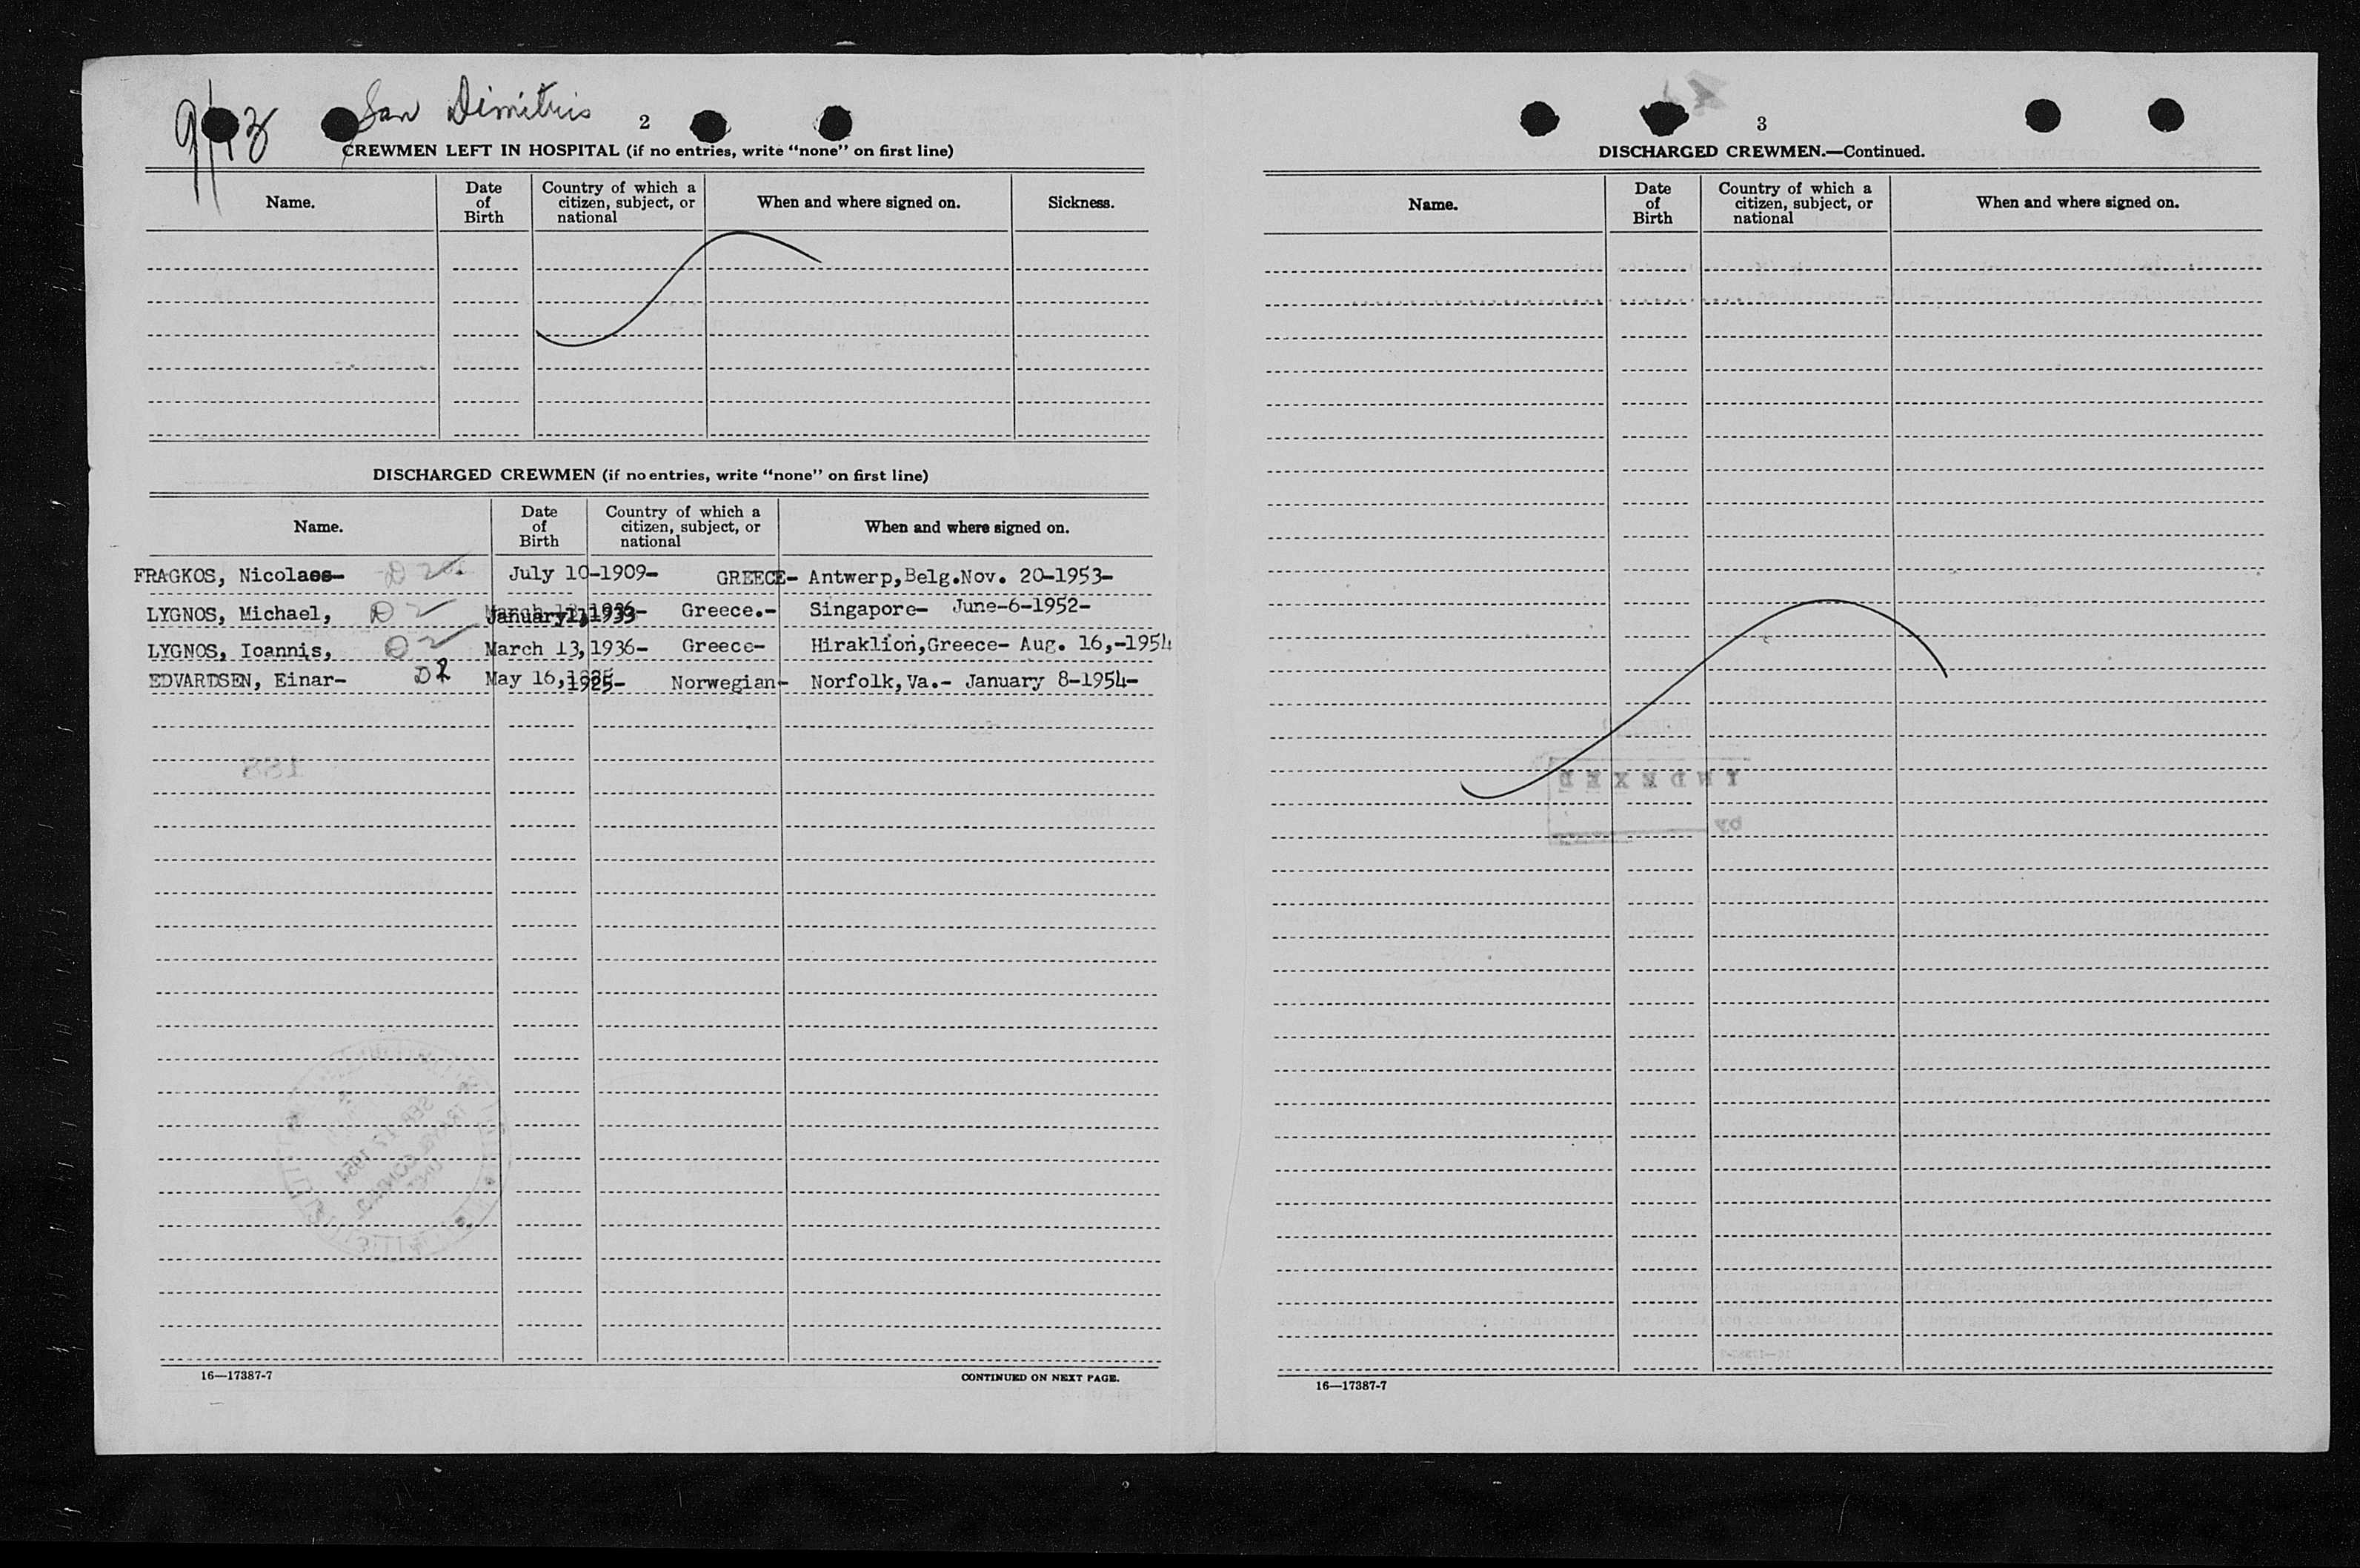 San Dimitris
2
CREWMEN LEFT IN HOSPITAL (if no entries, write “none” on first line)
Name. Date of Birth Country of which a citizen, subject, or national When and where signed on. Sickness.
DISCHARGED CREWMEN (if no entries, write “none” on first line)
Name. Date of Birth Country of which a citizen, subject, or national When and where signed on.
FRAGKOS, Nicolaos- D2 July 10-1909- GREECE- Antwerp,Belg.Nov. 20-1953-
LYGNOS, Michael, D2 January 1933 Greece.- Singapore- June-6-1952-
LYGNOS, Ioannis, D2 March 13, 1936- Greece- Hiraklion,Greece- Aug. 16,-1954
EDVARDSEN, Einar- D2 May 16, 1925- Norwegian- Norfolk,Va.- January 8-1954-
188
SEP 17 1954
16—17387-7 CONTINUED ON NEXT PAGE.
3
DISCHARGED CREWMEN.—Continued.
Name. Date of Birth Country of which a citizen, subject, or national When and where signed on.
INDEXED
by
16—17387-7